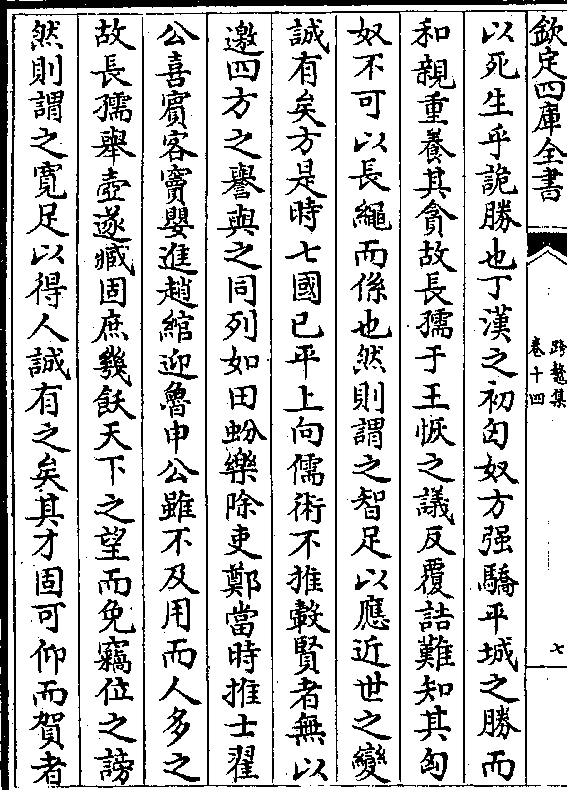 欽定四庫全書
跨鼇集
卷十四
七
以死生乎詭勝也丁漢之初匈奴方强驕平城之勝而
和親重養其貪故長孺于王恢之議反覆詰難知其匈
奴不可以長繩而係也然則謂之智足以應近世之變
誠有矣方是時七國已平上向儒術不推轂賢者無以
邀四方之譽與之同列如田蚡樂除吏鄭當時推士翟
公喜賓客竇嬰進趙綰迎魯申公雖不及用而人多之
故長孺舉壺遂臧固庶幾飫天下之望而免竊位之謗
然則謂之寛足以得人誠有之矣其才固可仰而賀者